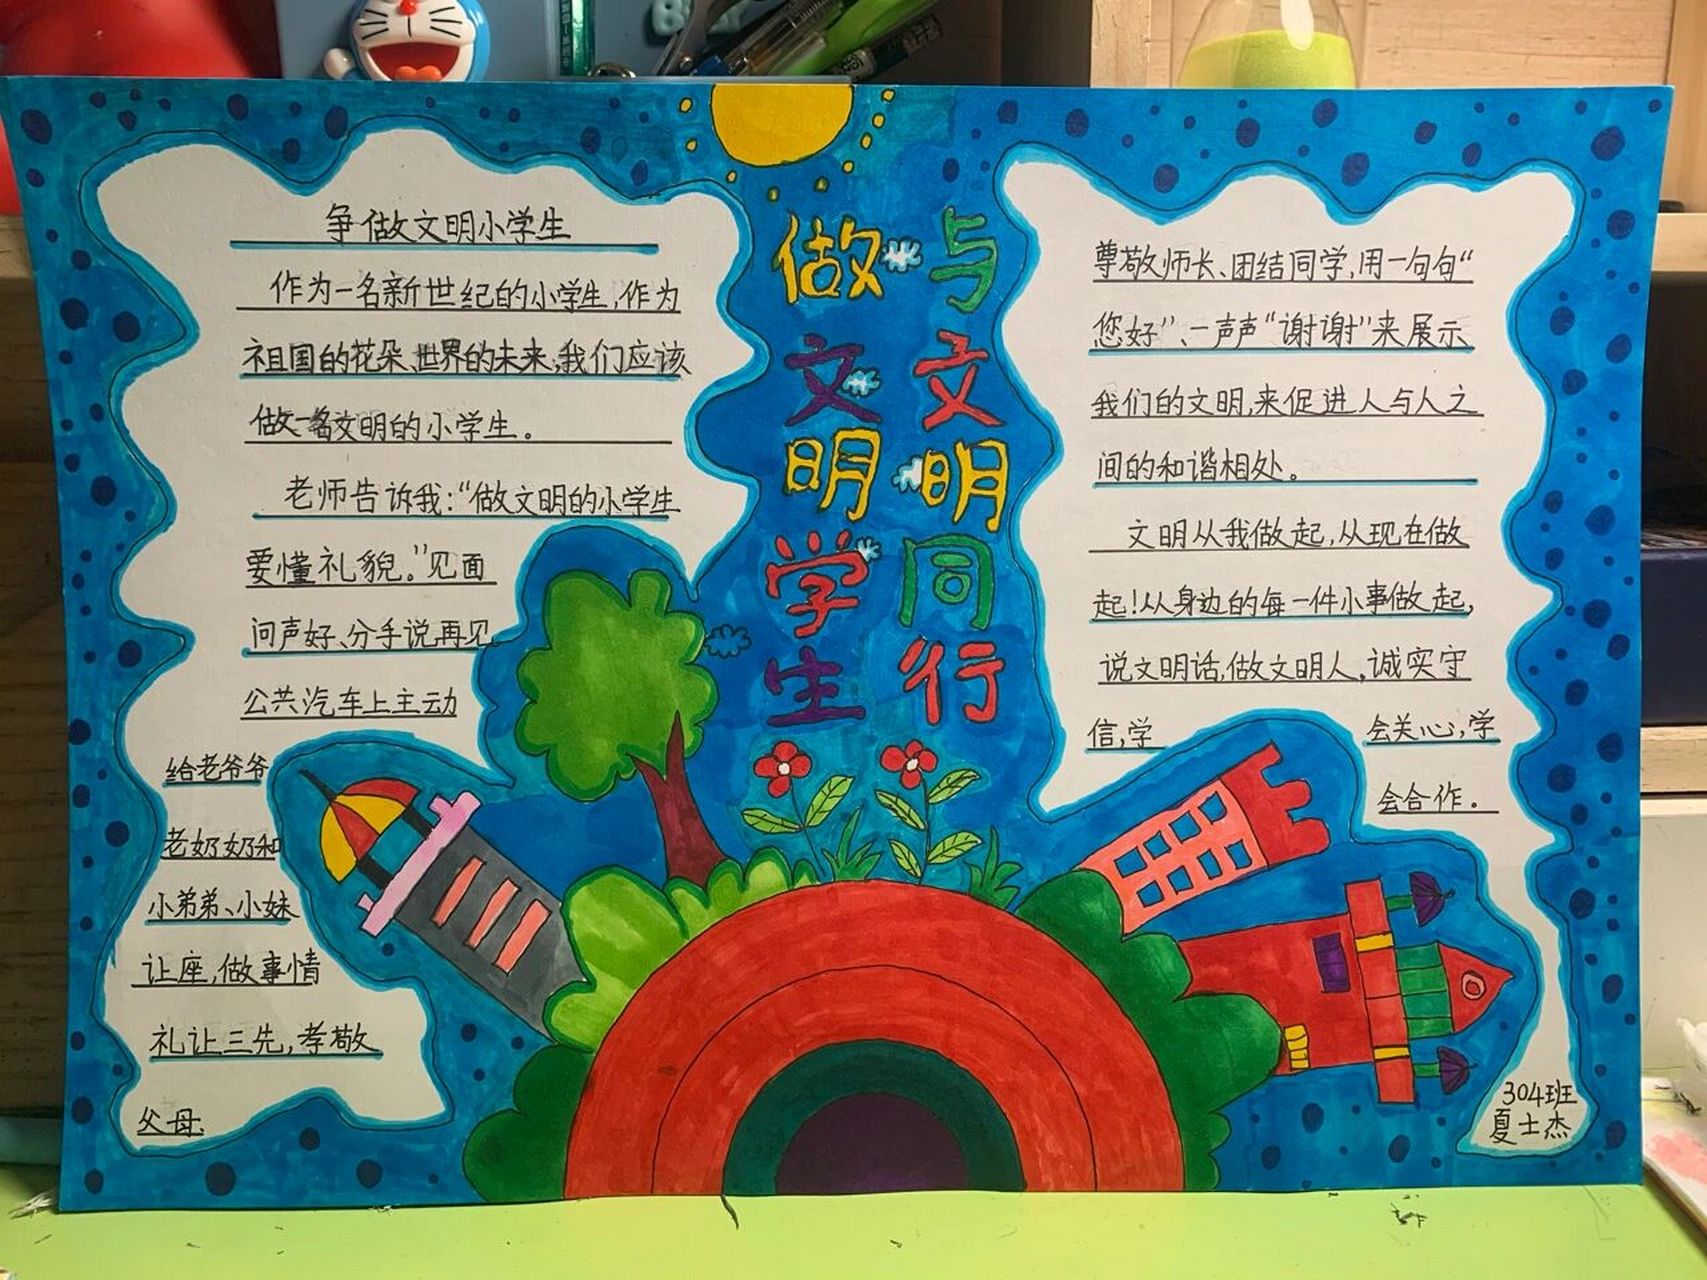 争做文明小学生
作为一名新世纪的小学生,作为
祖国的花朵、世界的未来,我们应该
做一名文明的小学生。
老师告诉我:“做文明的小学生
要懂礼貌。”见面
问声好、分手说再见
公共汽车上主动
给老爷爷
老奶奶和
小弟弟、小妹
让座,做事情
礼让三先,孝敬
父母.
与文明同行
做文明学生
尊敬师长、团结同学,用一句句“
您好”、一声声“谢谢”来展示
我们的文明,来促进人与人之
间的和谐相处。
文明从我做起,从现在做
起!从身边的每一件小事做起,
说文明话,做文明人。诚实守
信,学会关心,学
会合作。
304班
夏士杰